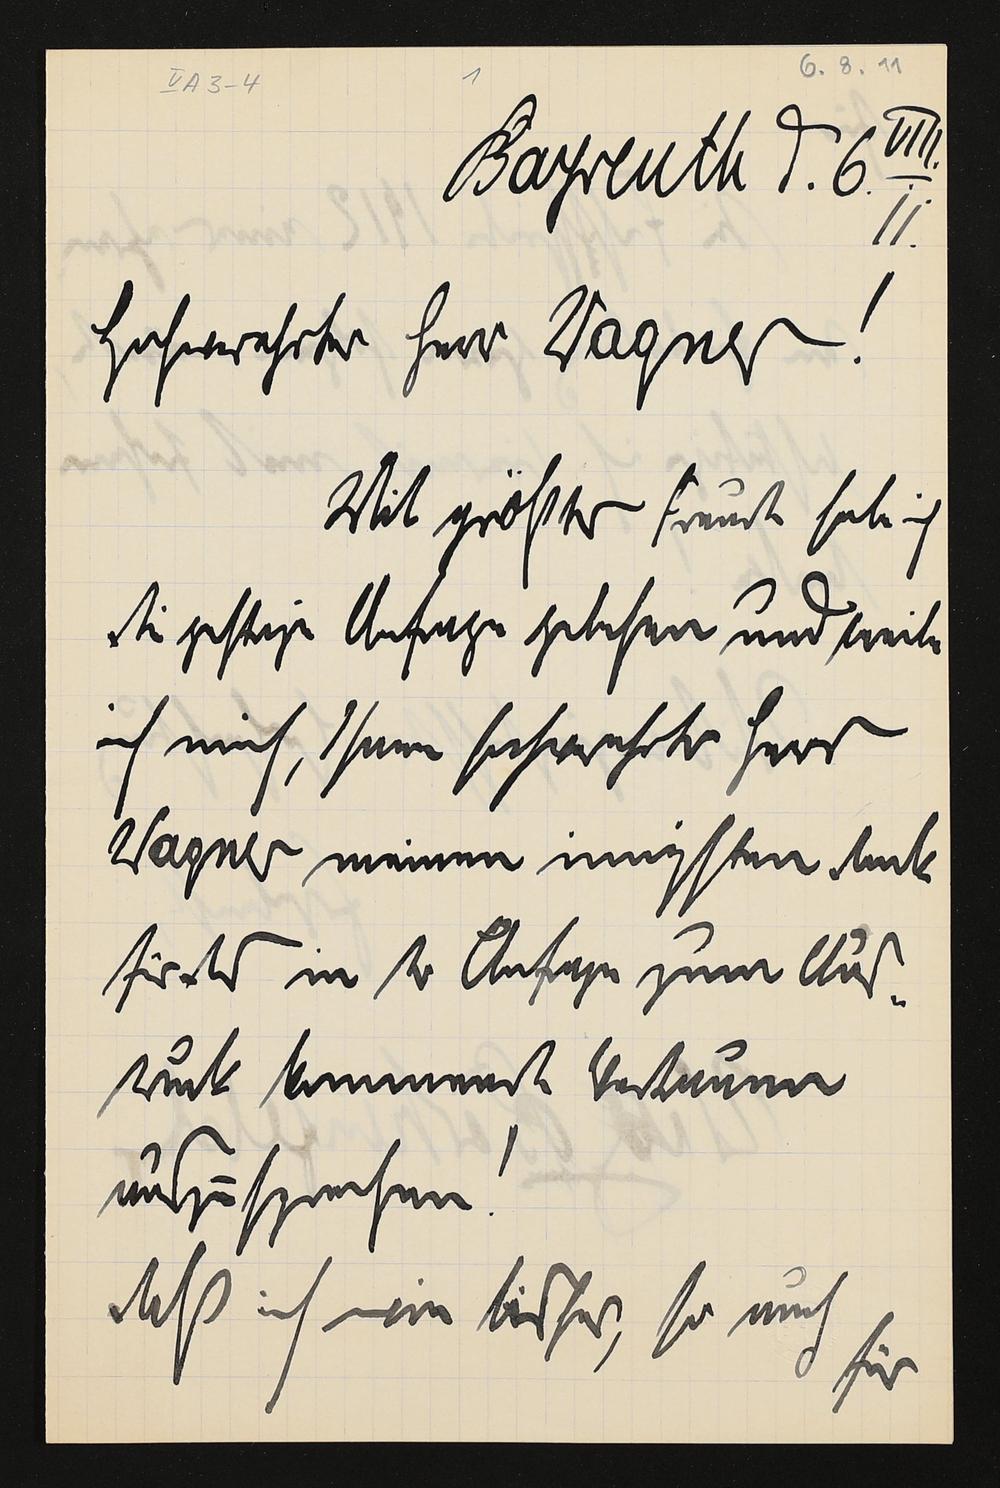 V A 3-4 1 6. 8. 11
Bayreuth d. 6. VIII.
11.
Hochverehrter Herr Wagner!
Mit größter Freude habe ich
die gestrige Anfrage gelesen und beeile
ich mich, Ihnen hochverehrter Herr
Wagner meinen innigsten Dank
für das in der Anfrage zum Aus„
druck kommende Vertrauen
auszusprechen!
Daß ich wie bisher, so auch
für